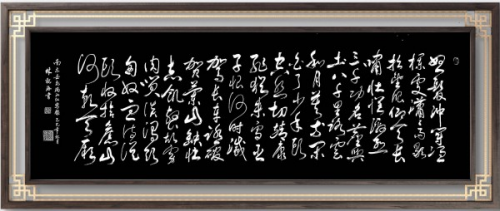 怒髮衝冠憑
欄處瀟瀟雨歇
抬望眼仰天長
嘯壯懷激烈
三十功名塵與
土八千里路雲
和月莫等閒
白了少年頭
空悲切靖康
恥猶未雪臣
子恨何時滅
駕長車踏破
賀蘭山缺壯
志飢餐胡虜
肉笑談渴飲
匈奴血待從
頭收拾舊山
河朝天闕
南宋岳飛滿江紅